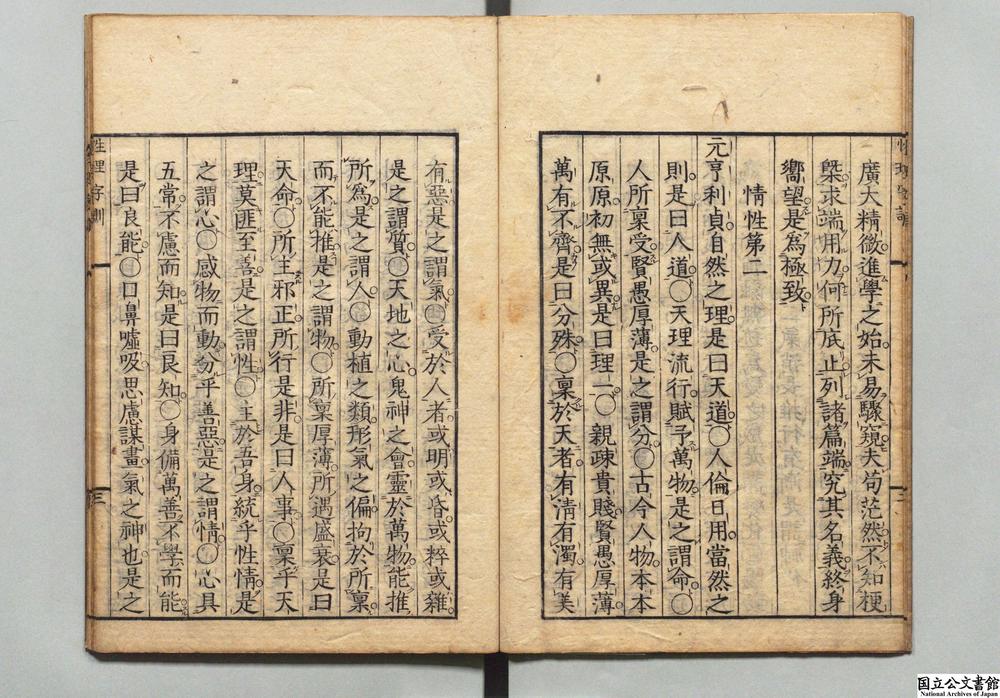 廣大精微進學之始未易驟窺夫茍茫然不知梗
槩求端用力何所底止列諸篇端究其名義終身
嚮望是爲極致
情性第二
元亨利貞自然之理是曰天道○人倫日用當然之
則是曰人道○天理流行賦予萬物是之謂命○
人所稟受賢愚厚薄是之謂分○古今人物本本
原原初無或異是曰理一○親疎貴賤賢愚厚薄
萬有不齊是曰分殊○稟於天者有淸有濁有美
有惡是之謂氣○受於人者或明或昏或粹或雜
是之謂質○天地之心鬼神之會靈於萬物能推
所爲是之謂人○動植之類形氣之偏拘於所稟
而不能推是之謂物○所稟厚薄所遇盛衰是曰
天命○所主邪正所行是非是曰人事○稟乎天
理莫匪至善是之謂性○主於吾身統乎性情是
之謂心○感物而動分乎善惡是之謂情○心具
五常不慮而知是曰良知○身備萬善不學而能
是曰良能○口鼻噓吸思慮謀畫氣之神也是之
性理字訓
三
国立公文書館
National Archives of Japan